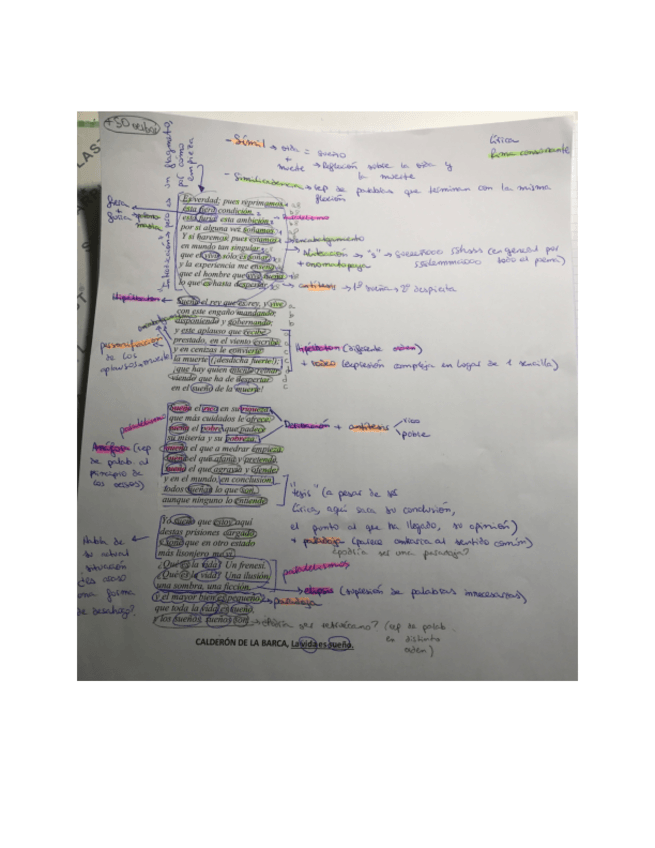 +50 verbos
- Símil → vida = sueño
+
muerte → Reflexión sobre la vida y
la muerte
Lírica
Rima consonante
- Similicadencia → rep de palabras que terminan con la misma
flexión
Es verdad; pues reprimamos
esta fiera condición,
esta furia, esta ambición,
por si alguna vez soñamos.
Y sí haremos, pues estamos
en mundo tan singular,
que el vivir sólo es soñar;
y la experiencia me enseña
que el hombre que vive, sueña
lo que es, hasta despertar.
→ encabalgamiento
Aliteración → "s" →
+ onomatopeya
→ antítesis → 1º sueña → 2º despierta
Hipérbaton
Sueña el rey que es rey, y vive
con este engaño mandando,
disponiendo y gobernando;
y este aplauso, que recibe
prestado, en el viento escribe,
y en cenizas le convierte
la muerte, ¡desdicha fuerte!,
¡que hay quien intente reinar,
viendo que ha de despertar
en el sueño de la muerte!
personificación
de los
aplausos, muerte
Hipérbaton (siguiente orden)
+ rodeo (expresión compleja en lugar de 1 sencilla)
paralelismo
Sueña el rico en su riqueza,
que más cuidados le ofrece;
sueña el pobre que padece
su miseria y su pobreza;
sueña el que a medrar empieza,
sueña el que afana y pretende,
sueña el que agravia y ofende,
y en el mundo, en conclusión,
todos sueñan lo que son,
aunque ninguno lo entiende.
Derivación + antítesis
rico
pobre
Anáfora (rep
de palab. al
principio de
los versos)
"tesis" (a pesar de ser
lírica, aquí saca su conclusión,
el punto al que ha llegado, su opinión)
+ paradoja (parece contraria al sentido común)
¿podría ser una paradoja?
Yo sueño que estoy aquí
destas prisiones cargado,
y soñé que en otro estado
más lisonjero me vi.
¿Qué es la vida? Un frenesí.
¿Qué es la vida? Una ilusión,
una sombra, una ficción,
y el mayor bien es pequeño;
que toda la vida es sueño,
y los sueños, sueños son.
Habla de
su actual
situación
una forma
de desahogo?
paralelismos
→ elipsis (supresión de palabras innecesarias)
→ paradoja
→ ¿podría ser retruécano? (rep de palab.
en distinto
orden)
CALDERÓN DE LA BARCA, La vida es sueño.